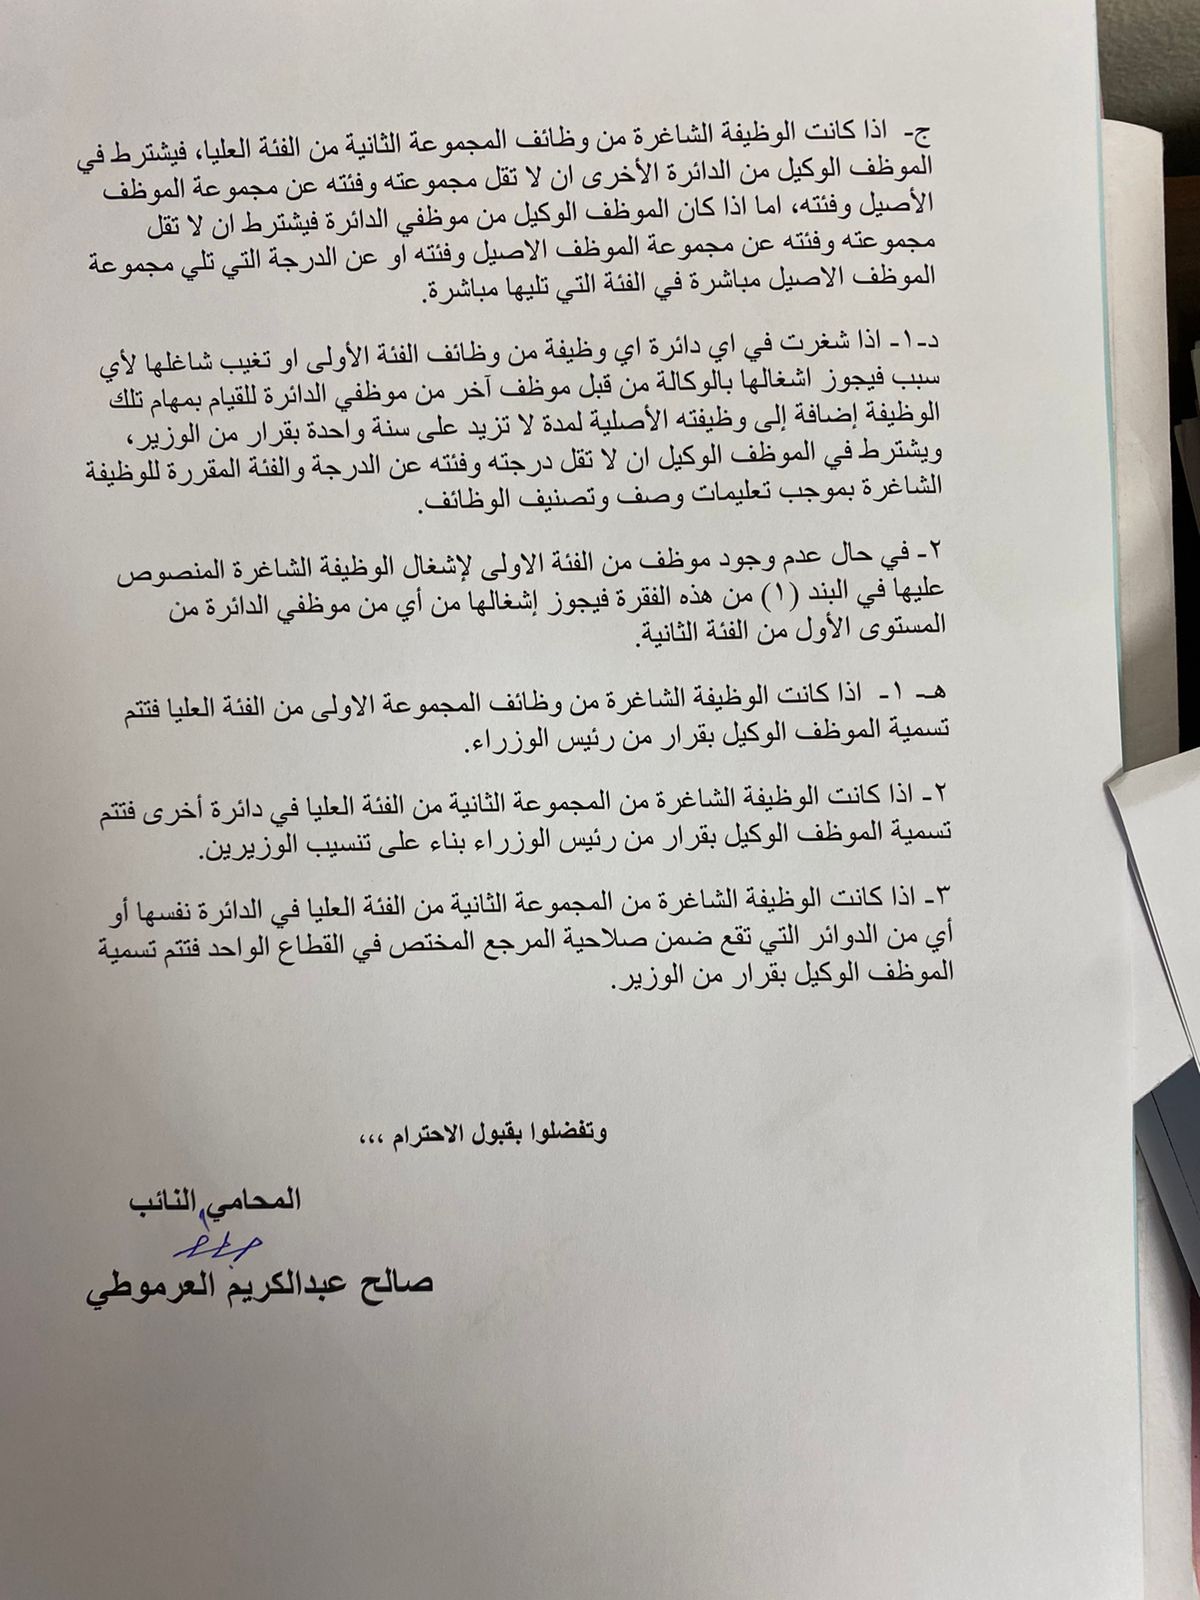 ج- اذا كانت الوظيفة الشاغرة من وظائف المجموعة الثانية من الفئة العليا، فيشترط في
الموظف الوكيل من الدائرة الأخرى ان لا تقل مجموعته وفئته عن مجموعة الموظف
الأصيل وفئته، اما اذا كان الموظف الوكيل من موظفي الدائرة فيشترط ان لا تقل
مجموعته وفئته عن مجموعة الموظف الاصيل وفئته او عن الدرجة التي تلي مجموعة
الموظف الاصيل مباشرة في الفئة التي تليها مباشرة.
د-١- اذا شغرت في اي دائرة اي وظيفة من وظائف الفئة الأولى او تغيب شاغلها لأي
سبب فيجوز اشغالها بالوكالة من قبل موظف آخر من موظفي الدائرة للقيام بمهام تلك
الوظيفة إضافة إلى وظيفته الأصلية لمدة لا تزيد على سنة واحدة بقرار من الوزير،
ويشترط في الموظف الوكيل ان لا تقل درجته وفئته عن الدرجة والفئة المقررة للوظيفة
الشاغرة بموجب تعليمات وصف وتصنيف الوظائف.
٢- في حال عدم وجود موظف من الفئة الاولى لإشغال الوظيفة الشاغرة المنصوص
عليها في البند (١) من هذه الفقرة فيجوز إشغالها من أي من موظفي الدائرة من
المستوى الأول من الفئة الثانية.
هـ- ١- اذا كانت الوظيفة الشاغرة من وظائف المجموعة الاولى من الفئة العليا فتتم
تسمية الموظف الوكيل بقرار من رئيس الوزراء.
٢- اذا كانت الوظيفة الشاغرة من المجموعة الثانية من الفئة العليا في دائرة أخرى فتتم
تسمية الموظف الوكيل بقرار من رئيس الوزراء بناء على تنسيب الوزيرين.
٣- اذا كانت الوظيفة الشاغرة من المجموعة الثانية من الفئة العليا في الدائرة نفسها أو
أي من الدوائر التي تقع ضمن صلاحية المرجع المختص في القطاع الواحد فتتم تسمية
الموظف الوكيل بقرار من الوزير.
وتفضلوا بقبول الاحترام ،،،
المحامي النائب
صالح عبدالكريم العرموطي